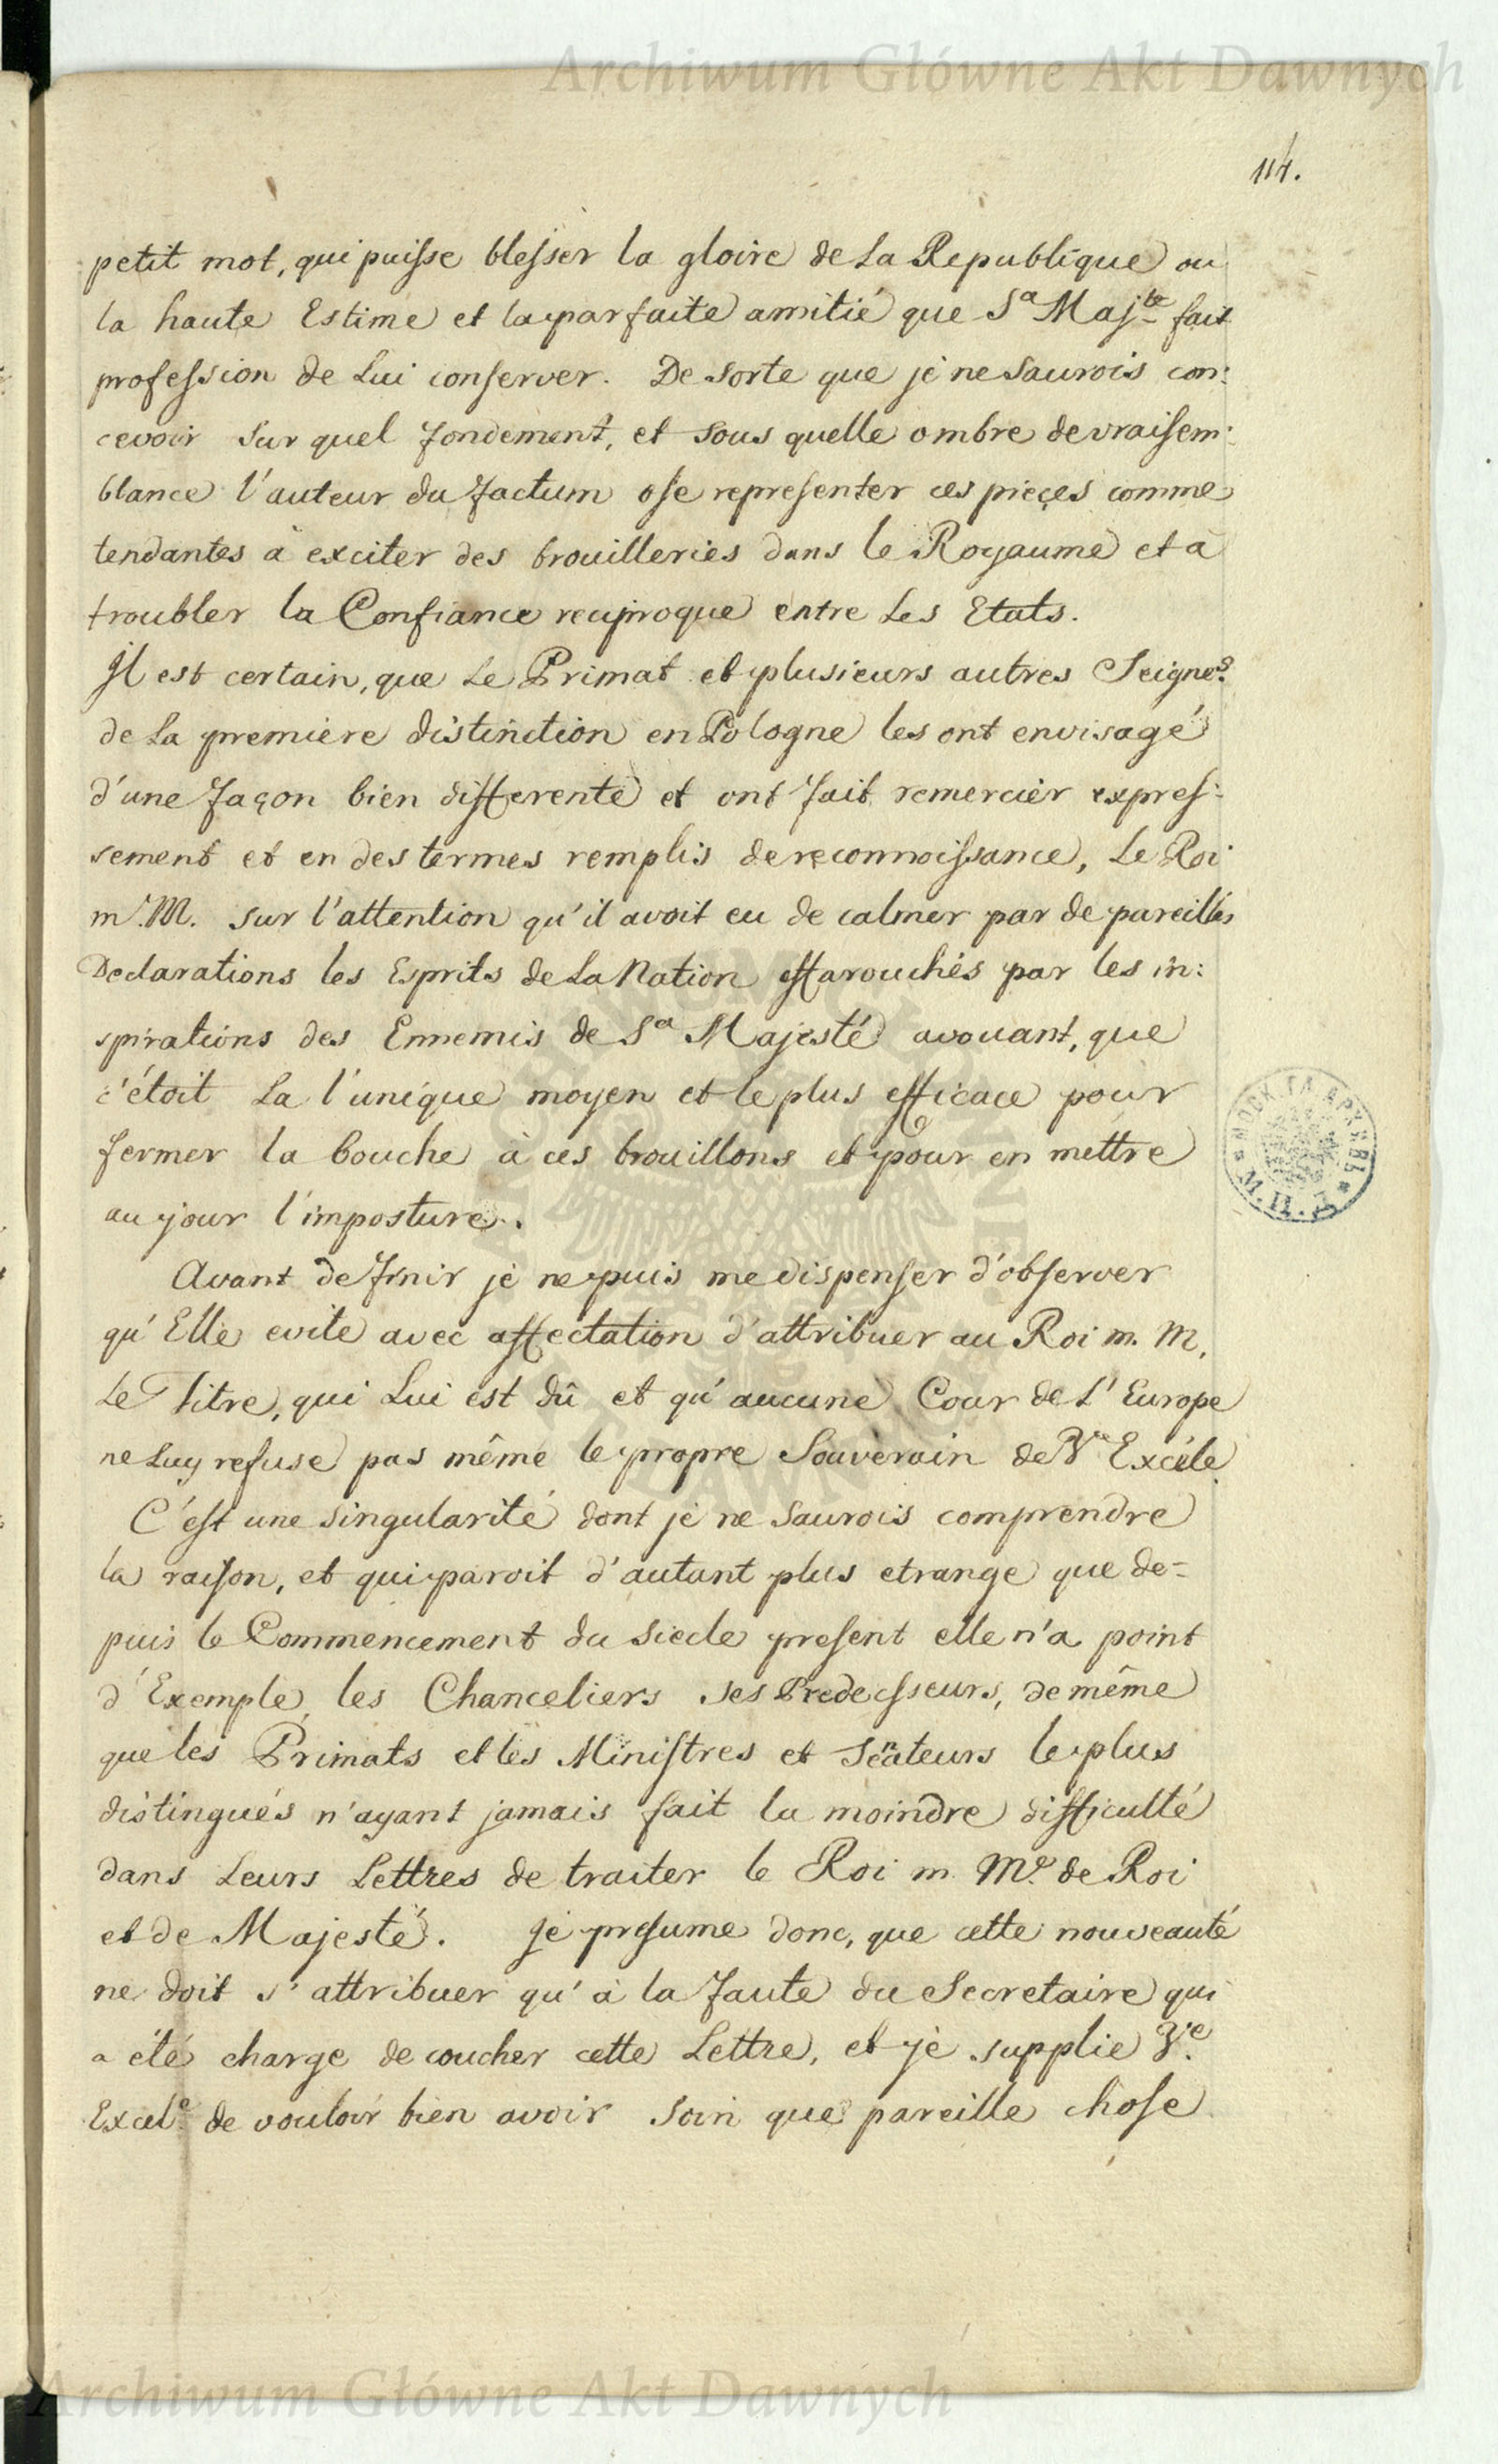 Archiwum Główne Akt Dawnych
114.
petit mot, qui puisse blesser la gloire de La Republique ou
la haute Estime et la parfaite amitié que Sa Majte fait
profession de Lui conserver. De sorte que je ne saurois con:
cevoir sur quel fondement, et sous quelle ombre de vraisem:
blance l'auteur du factum ose representer ces pieçes comme
tendantes à exciter des brouilleries dans le Royaume et à
troubler la Confiance reciproque entre Les Etats.
Il est certain, que Le Primat et plusieurs autres Seignes
de La premiere distinction en Pologne les ont envisagé
d'une façon bien differente et ont fait remercier expres-
sement et en des termes remplis de reconnoissance, Le Roi
m. M. sur l'attention qu'il avoit eu de calmer par de pareilles
Declarations les Esprits de La Nation effarouchés par les in:
spirations des Ennemis de Sa Majesté avouant, que
c'étoit La l'unique moyen et le plus efficace pour
fermer la bouche à ces brouillons et pour en mettre
au jour l'imposture.
Avant de finir je ne puis me dispenser d'observer
qu'Elle evite avec affectation d'attribuer au Roi m. M.
Le Titre, qui Lui est dû et qu'aucune Cour de L'Europe
ne Luy refuse pas même le propre Souverain de Vre Excéle
C'est une singularité dont je ne saurois comprendre
la raison, et qui paroit d'autant plus etrange que de-
puis le Commencement du siecle present elle n'a point
d'Exemple, les Chanceliers ses Predecesseurs, de même
que les Primats et les Ministres et Senateurs le plus
distingués n'ayant jamais fait la moindre difficulté
dans Leurs Lettres de traiter le Roi m. Me. de Roi
et de Majesté. Je presume donc, que cette nouveauté
ne doit s'attribuer qu'à la faute du Secretaire qui
a été charge de coucher cette Lettre, et je supplie Ve.
Excele de vouloir bien avoir soin que pareille chose
Archiwum Główne Akt Dawnych